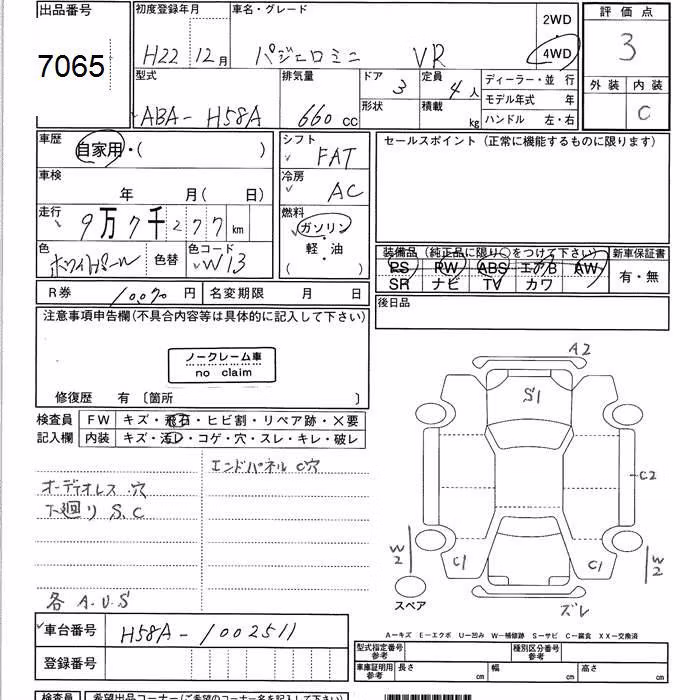 出品番号 7065
初度登録年月 H22 12月
車名・グレード パジェロミニ VR
2WD
4WD
評価点 3
外装 内装 C
型式 ABA-H58A
排気量 660 cc
ドア 3
定員 4人
形状 積載 kg
ディーラー・並行
モデル年式 年
ハンドル 左・右
車歴 自家用・( )
シフト FAT
セールスポイント (正常に機能するものに限ります)
車検 年 月( 日)
冷房 AC
走行 9万7千277 km
燃料 ガソリン
軽・油
( )
色 ホワイトパール 色替
色コード W13
装備品 (純正品に限り○をつけて下さい)
新車保証書
PS PW ABS エアB AW
SR ナビ TV カワ
有・無
R券 10070 円 名変期限 月 日
後日品
注意事項申告欄(不具合内容等は具体的に記入して下さい)
ノークレーム車
no claim
修復歴 有 〔箇所 〕
検査員 FW キズ・飛石・ヒビ割・リペア跡・X要
記入欄 内装 キズ・汚レ・コゲ・穴・スレ・キレ・破レ
エンドパネル C穴
オーディオレス.穴
下廻り S.C
各 A.U.S
A2
S1
C2
W2 C1 C1 W2
スペア ズレ
A－キズ E－エクボ U－凹み W－補修跡 S－サビ C－腐食 XX－交換済
車台番号 H58A-1002511
登録番号
型式指定番号 参考 種別区分番号 参考
車庫証明用 参考 長さ cm 幅 cm 高さ cm
検査員 希望出品コーナー(ご希望のコーナー名を記入して下さい)